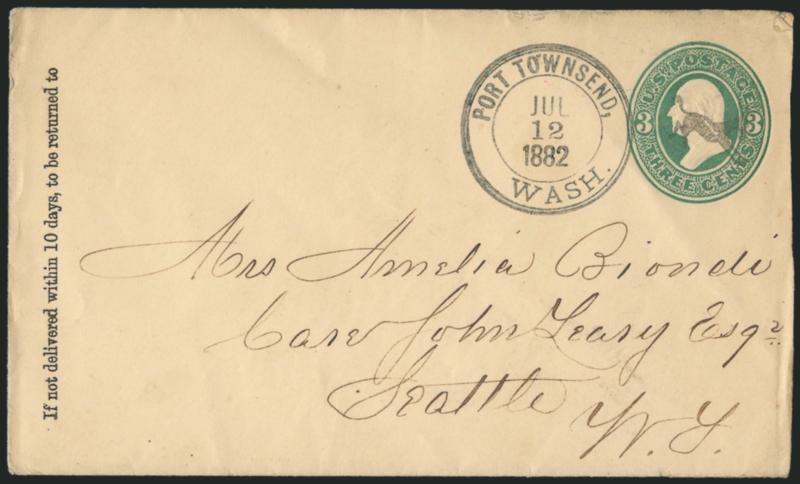 If not delivered within 10 days, to be returned to
PORT TOWNSEND,
JUL
12
1882
WASH.
U.S. POSTAGE
3 3
THREE CENTS
Mrs Amelia Biondi
Care John Leary Esqr.
Seattle W. T.